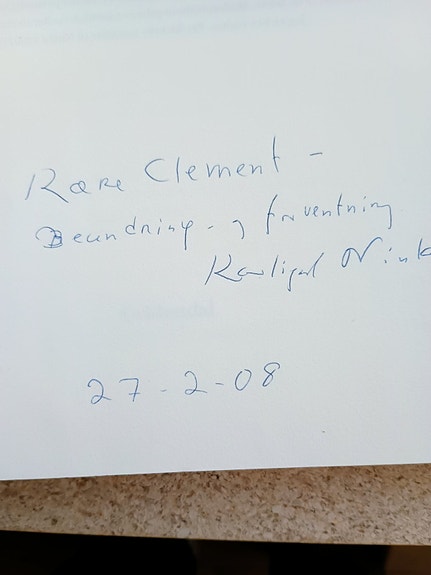 Kære Clement -
Beundring - og forventning
Kærligst
27-2-08